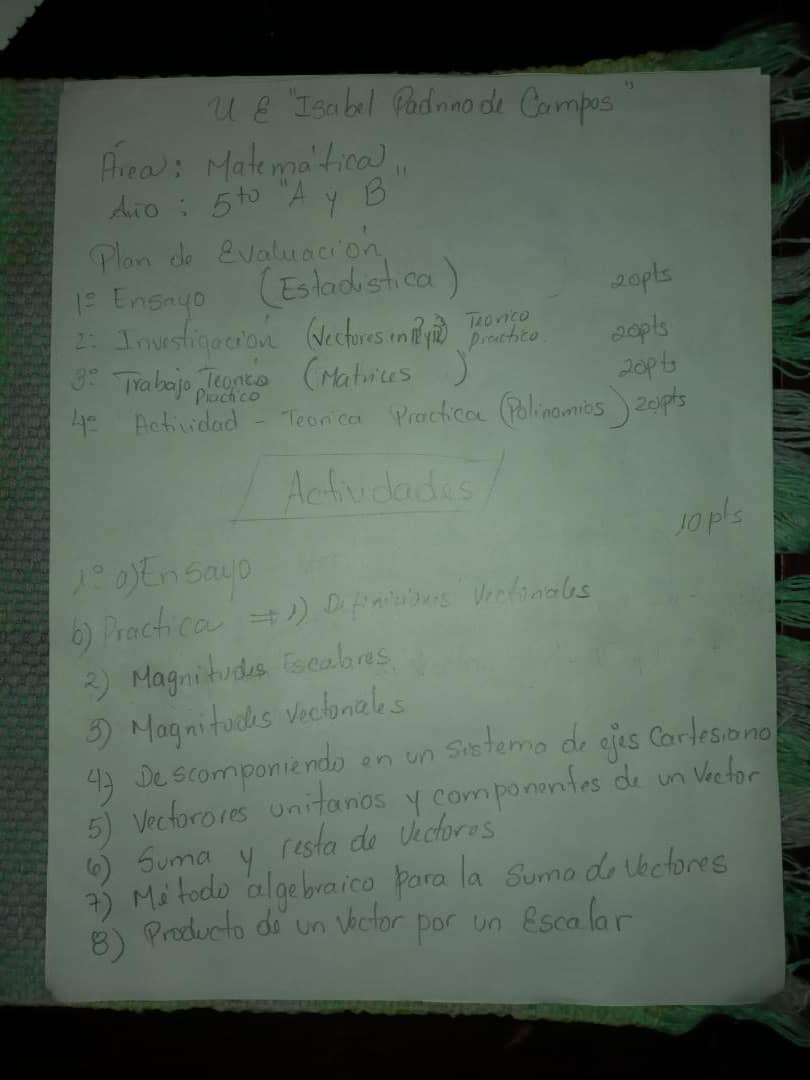 U E "Isabel Padrino de Campos"
Área: Matemática
Año: 5to "A y B"
Plan de Evaluación
1º Ensayo (Estadistica) 20pts
2º Investigación (Vectores en R² y R³) Teorico Practico. 20pts
3º Trabajo Teorico Practico (Matrices) 20pts
4º Actividad - Teorica Practica (Polinomios) 20pts
Actividades
10 pts
1º a) Ensayo
b) Practica ⇒ 1) Definiciones Vectoriales
2) Magnitudes Escalares
3) Magnitudes Vectoriales
4) Descomponiendo en un Sistema de ejes Cartesiano
5) Vectorores unitarios y componentes de un Vector
6) Suma y resta de Vectores
7) Método algebraico para la Suma de Vectores
8) Producto de un Vector por un Escalar